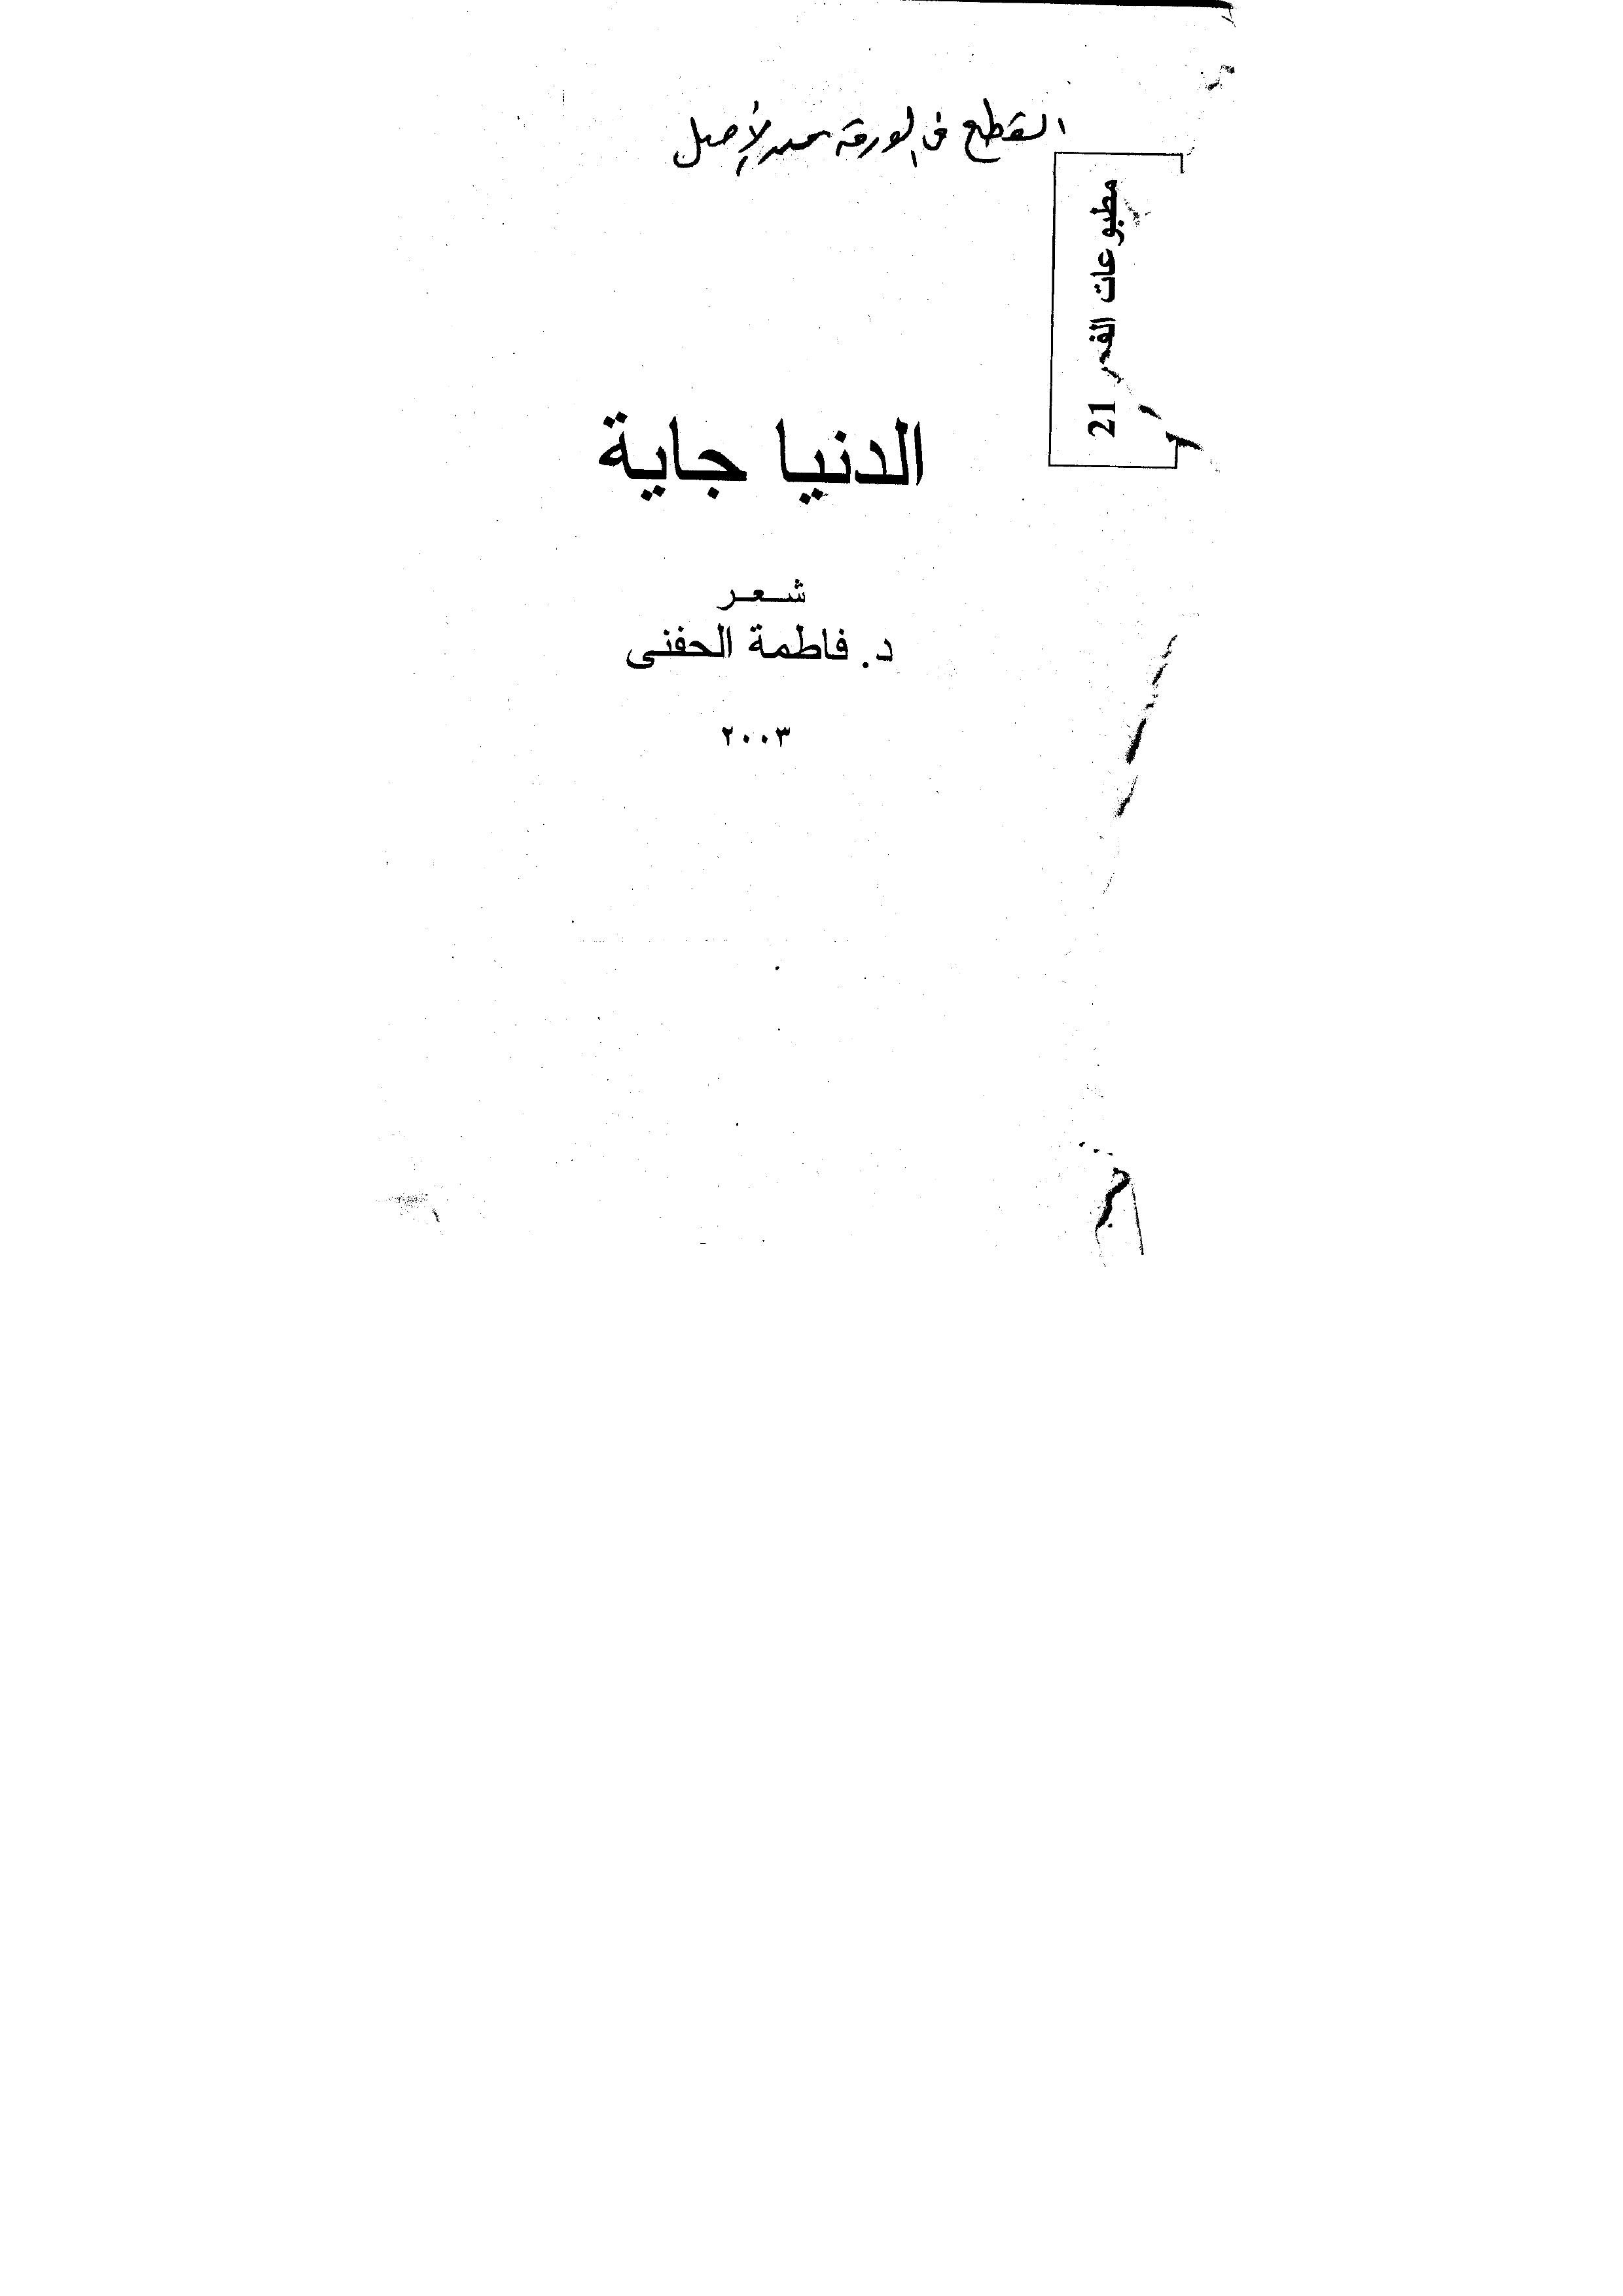 القطع في الورقة من الأصل
مطبوعات القمر 21
الدنيا جاية
شعر
د. فاطمة الحفنى
٢٠٠٣